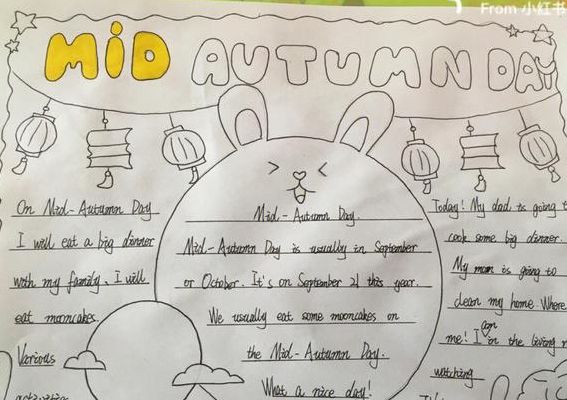 From 小红书
MiD AUTUMN DAY
On Mid-Autumn Day
I will eat a big dinner
with my family. I will
eat mooncakes.
Various
Mid-Autumn Day
Mid-Autumn Day is usually in September
or October. It's on September 21 this year.
We usually eat some mooncakes on
the Mid-Autumn Day.
What a nice day!
Today! My dad is going
cook some big dinner.
My mom is going to
clean my home. Where
am
me! I in the living
watching